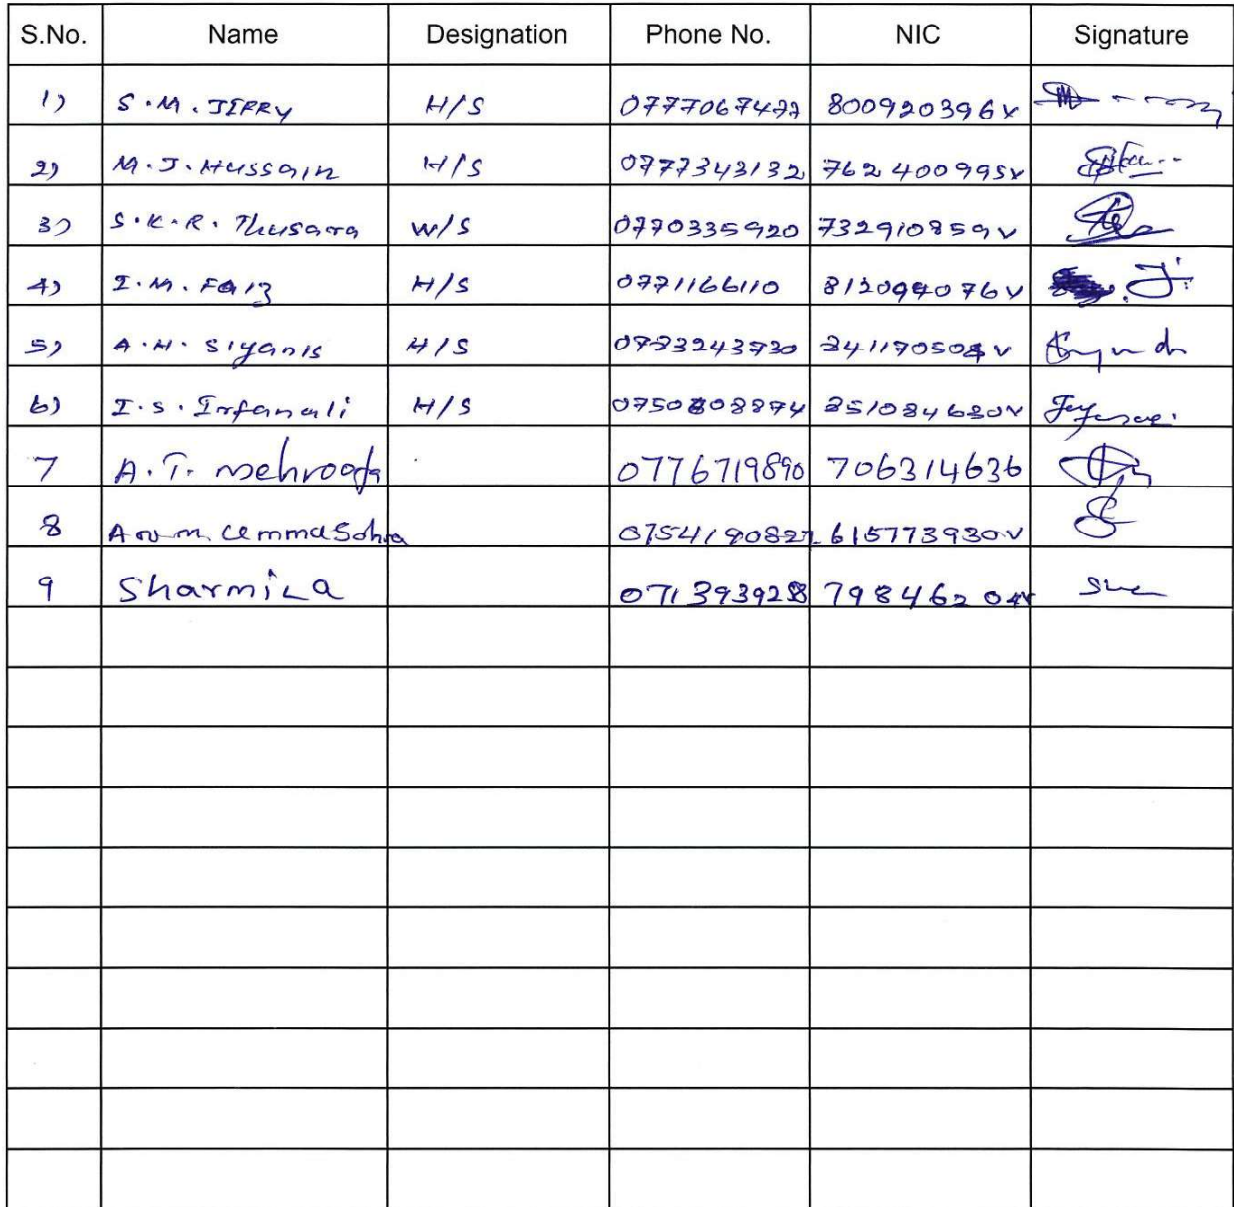 S.No. Name Designation Phone No. NIC Signature
1) S.M. JIFRY H/S 0777067477 800920396V
2) M.J. Hussain H/S 0777343132 762400995V
3) S.K.R. Thusara W/S 0770335920 732910859V
4) I.M. Faiz H/S 0771166110 812094076V
5) A.H. Siyanis H/S 0773243730 841170504V
6) I.S. Irfanali H/S 0750808874 851084630V
7 A.T. mehroofa 0776719890 706314636
8 0754190827 615773930V
9 Sharmila 0713939258 79846204V